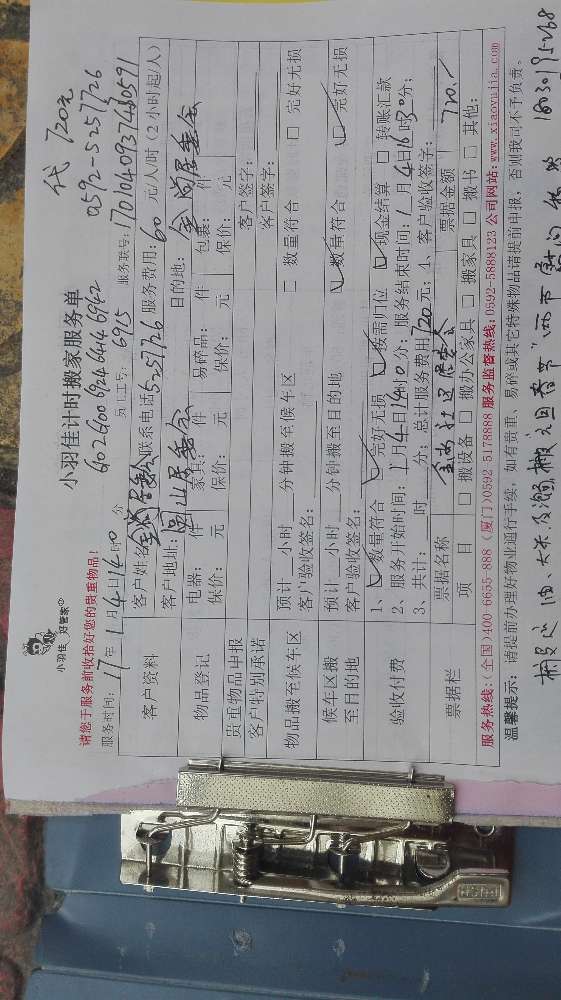 小羽佳 好管家
小羽佳计时搬家服务单
代 720元
0592-5257726
请您于服务前收拾好您的贵重物品!
服务时间: 17年1月4日14时00分 员工工号: 6915 服务联号:
客户资料 客户姓名 联系电话 5257726 服务费用: 60 元/人/时 (2小时起/人)
客户地址: 居委会 目的地: 金尚居委会
物品登记 电器: 件 家具: 件 易碎品: 件 包裹: 件
贵重物品申报 保价: 元 保价: 元 保价: 元 保价: 元
客户特别承诺 客户签字:
物品搬至候车区 预计 小时 分钟搬至候车区 □ 数量符合 □ 完好无损
客户验收签名: 客户签字:
候车区搬至目的地 预计 小时 分钟搬至目的地 数量符合 完好无损
客户验收签名:
验收付费 1、 数量符合 完好无损 按需归位 现金结算 □ 转账汇款
2、服务开始时间: 1月4日14时0分; 服务结束时间: 1月4日16时30分;
3、共计: 时 分; 总计服务费用720元; 4、客户验收签字:
票据栏 票据名称 金尚社区居委会 票据金额 720.
项 目 □ 搬设备 □ 搬办公家具 □ 搬家具 □ 搬书 □ 其他:
服务热线: (全国)400-6655-888 (厦门)0592-5178888 服务监督热线: 0592-5888123 公司网站: www.xiaoyujia.com
温馨提示: 请提前办理好物业通行手续, 如有贵重、易碎或其它特殊物品请提前申报, 否则我司不予负责。
油、大米